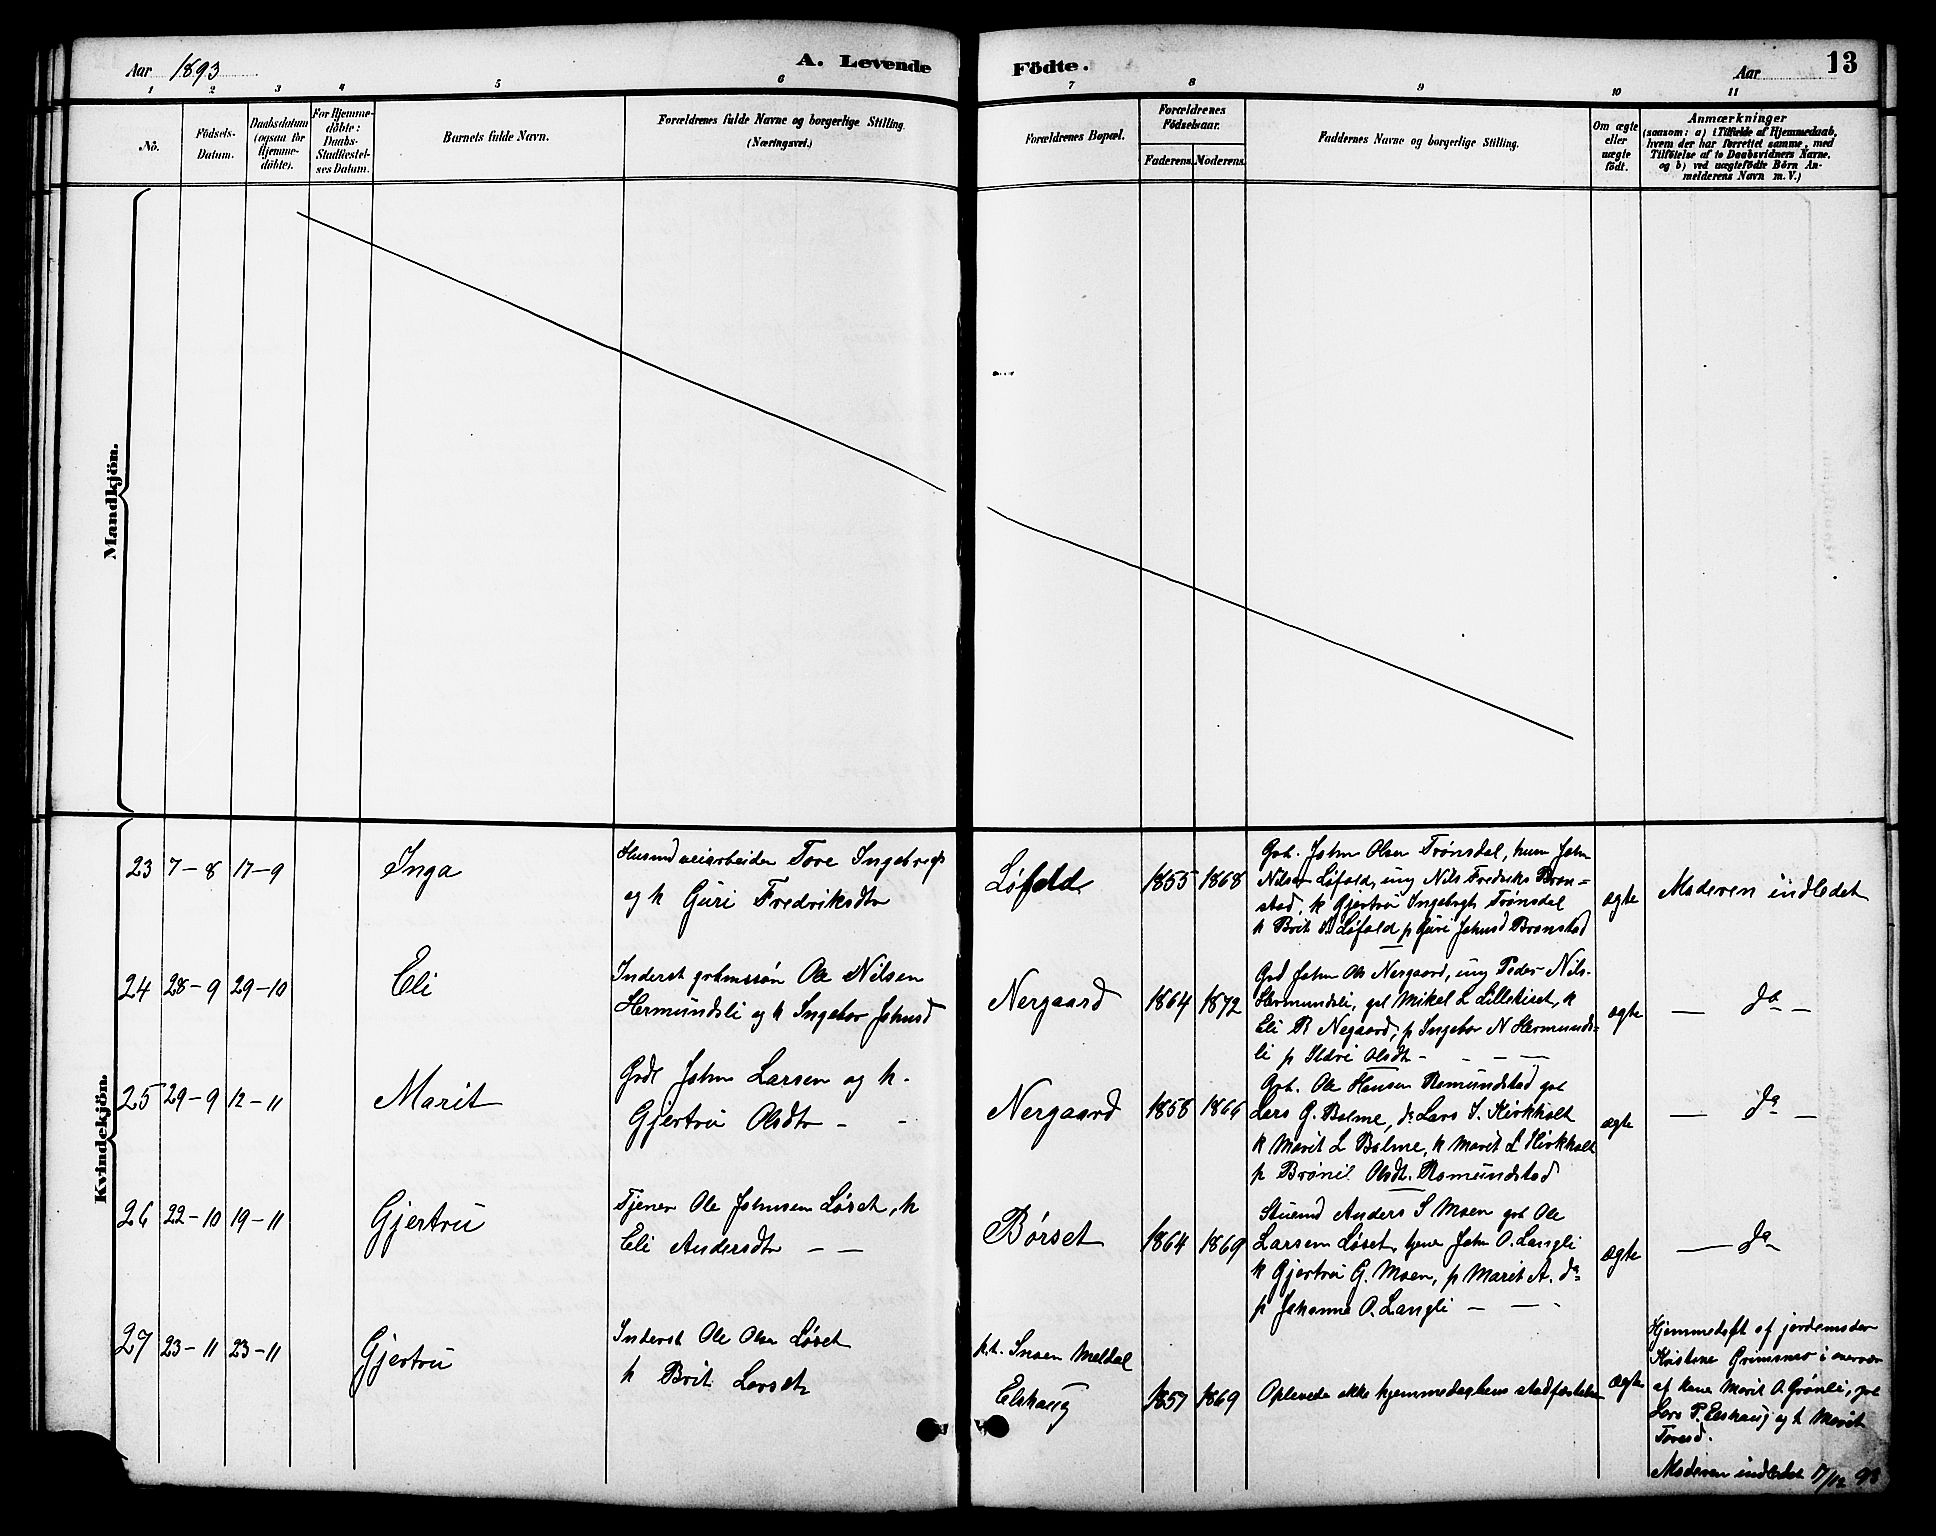 Aar 1893
A. Levende Födte.
Aar
13
1 2 3 4 5 6 7 8 9 10 11
No.
Födsels-
Datum.
Daabsdatum
(ogsaa for
Hjemme-
döbte).
For Hjemme-
döbte:
Daabs-
Stadfæstel-
ses Datum.
Barnets fulde Navn.
Forældrenes fulde Navne og borgerlige Stilling.
(Næringsvei.)
Forældrenes Bopæl.
Forældrenes
Födselsaar.
Faderens. Moderens.
Faddernes Navne og borgerlige Stilling.
Om ægte
eller
uægte
födt.
Anmærkninger
(saasom: a) i Tilfælde af Hjemmedaab,
hvem der har forrettet samme, med
Tilföielse af to Daabsvidners Navne,
og b) ved uægtefödte Börn An-
melderens Navn m. V.)
Mandkjön.
Kvindekjön.
23 7-8 17-9
Inga
Husmd veiarbeider Tore Ingebrigts
og k Guri Fredriksdtr
Løfald
1855 1868
Grb. John Olsen Trønsdal, husm John
Nilsen Løfald, ung Nils Fredriks Bran=
stad, k Gjertru Ingebrgt Trønsdal
k Brit Løfald p Guri Johnsd Branstad
ægte
Moderen indledet
24 28-9 29-10
Eli
Inderst grdmssøn Ole Nilsen
Hermundsli og k Ingebor Johnsd
Nergaard
1864 1872
Grd John Ols Nergaard, ung Peder Nils-
Hermundsli, gel Mikel L Lilleliset, k
Eli R Negaard, p Ingebor N Hermunds=
li p Ildri Olsdtr -
ægte
— Do —
25 29-9 12-11
Marit
Grdl John Larsen og k.
Gjertru Olsdtr - -
Nergaard
1858 1866
Grb. Ole Hansen Romundstad gbl
Lars G. Bolme, do Lars J. Kirkholt
k Marit L Bolme, k Marit L Kirkholt
p Brønil Olsdt. Romundstad
ægte
— Do —
26 22-10 19-11
Gjertru
Tjener Ole Johnsen Løset, k
Eli Andersdtr — —
Børset
1864 1869
Stuemd Anders S Moen grb Ole
Larsen Løset, tjener John O. Langli
k Gjertru G. Moen, p Marit A. do
p Johanna O. Langli - — -
ægte
— Do
27 23-11 23-11
Gjertru
Inderst Ole Olsen Løset
k Brit Larsdtr
p.t. Snoen Meldal
Elshaug
1857 1869
Oplevede ikke hjemmedaabens stadfæstelse
ægte
Hjemmedøbt af jordemoder
Kristine Grimsmo i overvær
af kone Marit O. Grønli, gbl
Lars P. Elshaug og k Marit
Toresd.
Moderen indledet 17/12 93